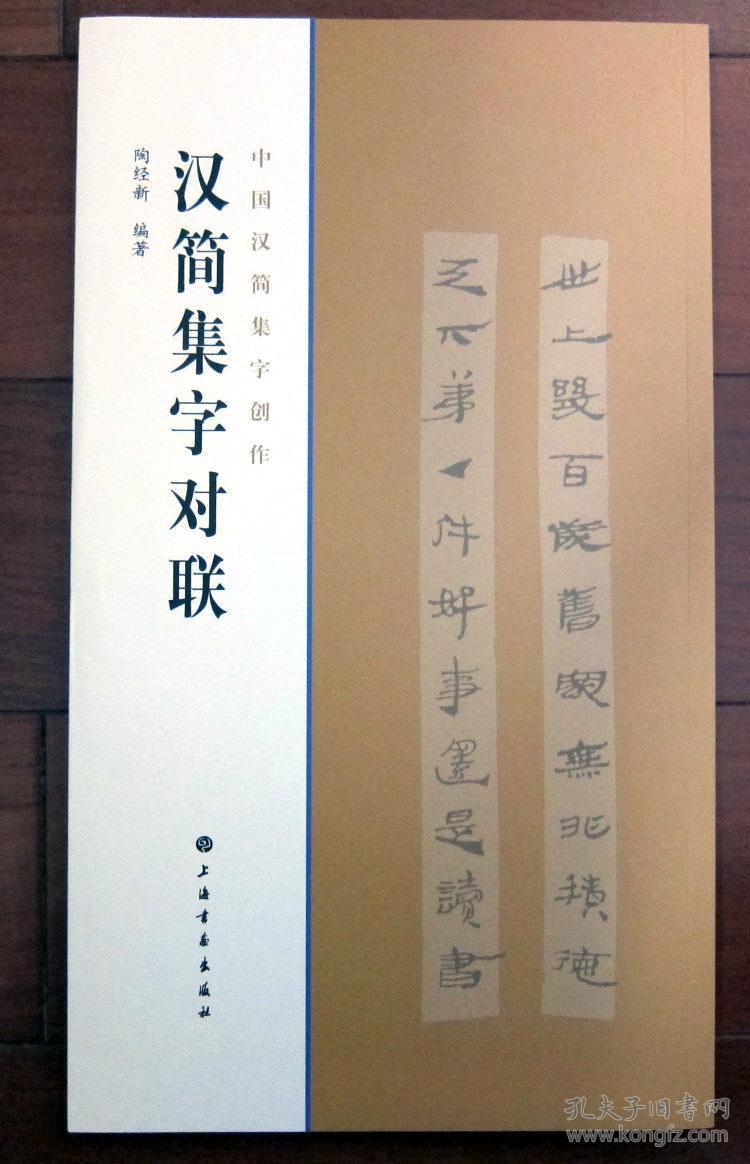 世上數百歲舊家無非積德
天下弟一件好事還是讀書
中国汉简集字创作
汉简集字对联
陶经新 编著
上海书画出版社
孔夫子旧書网
www.kongfz.com